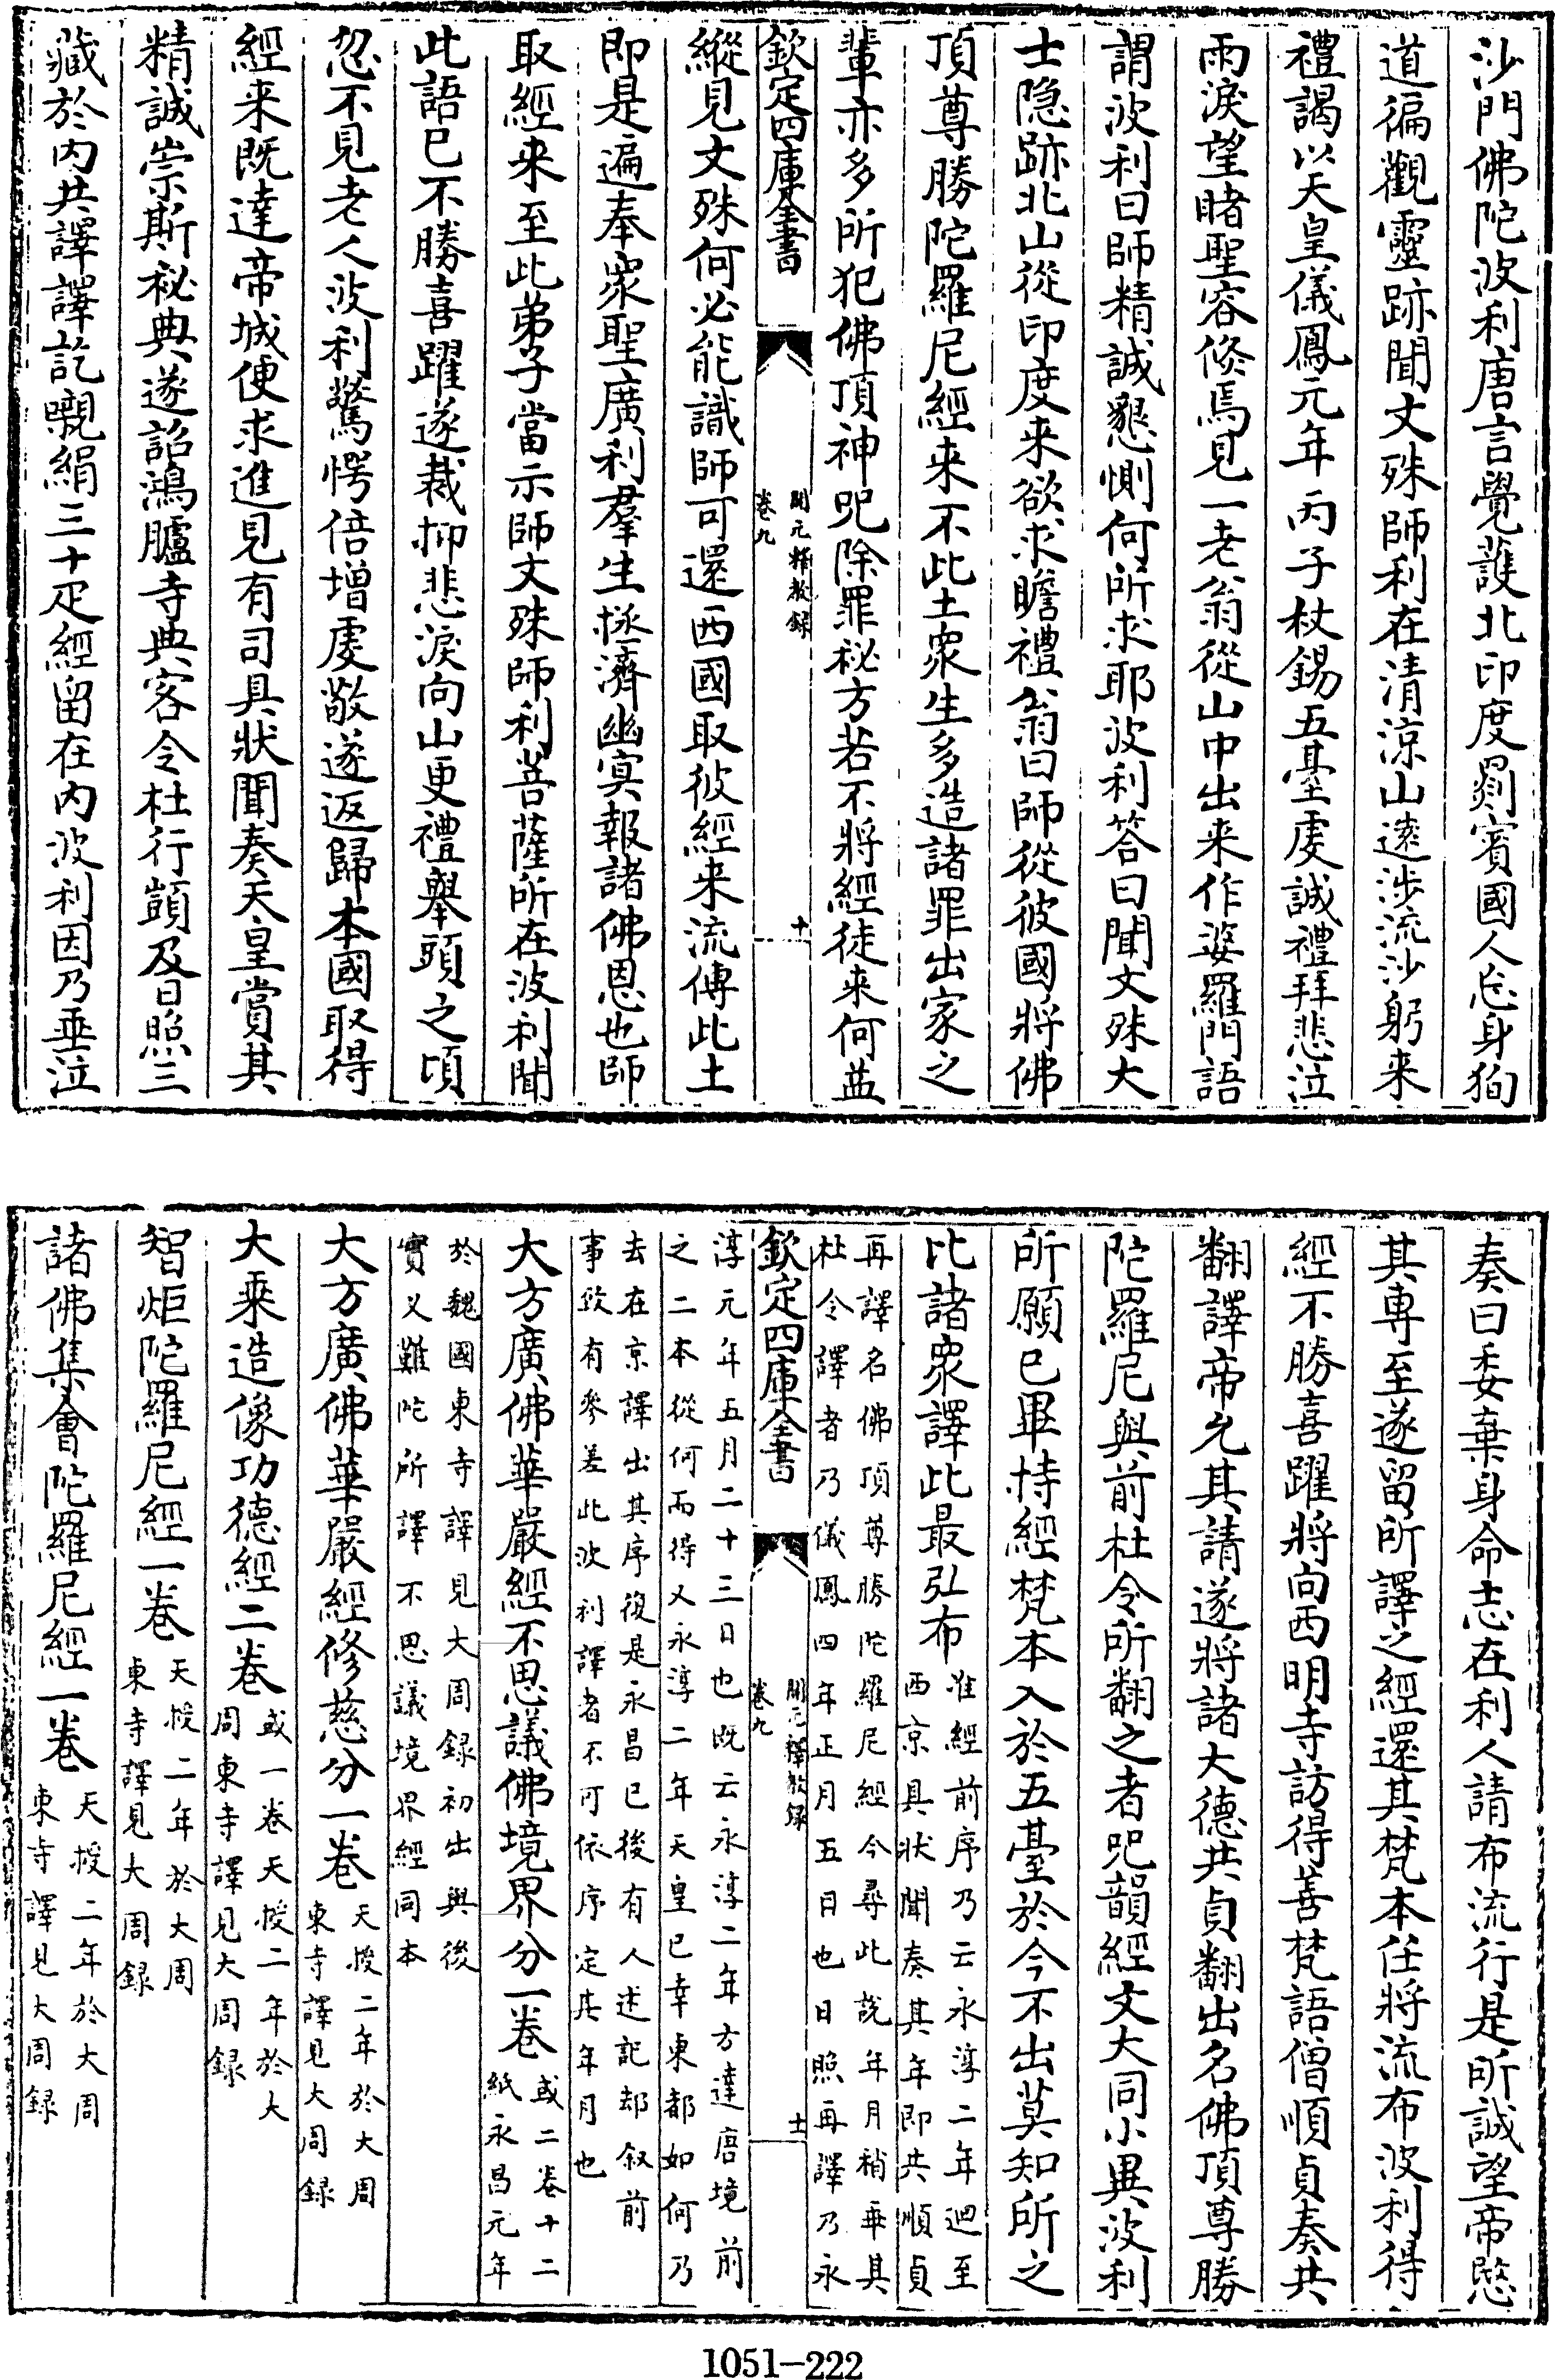 沙門佛陀波利唐言覺護北印度罽賓國人忘身狥
道徧觀靈跡聞文殊師利在清涼山遠涉流沙躬来
禮謁以天皇儀鳳元年丙子杖錫五臺虔誠禮拜悲泣
雨淚望睹聖容倐焉見一老翁從山中出来作婆羅門語
謂波利曰師精誠懇惻何所求耶波利答曰聞文殊大
士隐跡北山從印度来欲求瞻禮翁曰師從彼國將佛
頂尊勝陀羅尼經来不此土衆生多造諸罪出家之
輩亦多所犯佛頂神呪除罪秘方若不將經徒来何益
欽定四庫全書
開元釋教録
卷九
十
縱見文殊何必能識師可還西國取彼經来流傳此土
即是遍奉衆聖廣利羣生拯濟幽冥報諸佛恩也師
取經来至此弟子當示師文殊師利菩薩所在波利聞
此語已不勝喜躍遂裁抑悲淚向山更禮舉頭之頃
忽不見老人波利驚愕倍增虔敬遂返歸本國取得
經来既達帝城便求進見有司具狀聞奏天皇賞其
精誠崇斯秘典遂詔鴻臚寺典客令杜行顗及日照三
藏於内共譯譯訖嚫絹三十疋經留在内波利因乃垂泣
奏曰委棄身命志在利人請布流行是所誠望帝愍
其專至遂留所譯之經還其梵本任將流布波利得
經不勝喜躍將向西明寺訪得善梵語僧順貞奏共
翻譯帝允其請遂將諸大德共貞翻出名佛頂尊勝
陀羅尼與前杜令所翻之者呪韻經文大同小異波利
所願已畢持經梵本入於五臺於今不出莫知所之
比諸衆譯此最弘布
准經前序乃云永淳二年迴至
西京具狀聞奏其年即共順貞
再譯名佛頂尊勝陀羅尼經今尋此說年月稍乖其
杜令譯者乃儀鳳四年正月五日也日照再譯乃永
欽定四庫全書
開元釋教録
卷九
十一
淳元年五月二十三日也既云永淳二年方達唐境前
之二本從何而得又永淳二年天皇已幸東都如何乃
去在京譯出其序復是永昌已後有人述記却叙前
事致有參差此波利譯者不可依序定其年月也
大方廣佛華嚴經不思議佛境界分一卷
或二卷十二
紙永昌元年
於魏國東寺譯見大周録初出與後
實叉難陀所譯不思議境界經同本
大方廣佛華嚴經修慈分一卷
天授二年於大周
東寺譯見大周録
大乗造像功德經二卷
或一卷天授二年於大
周東寺譯見大周録
智炬陀羅尼經一卷
天授二年於大周
東寺譯見大周録
諸佛集會陀羅尼經一卷
天授二年於大周
東寺譯見大周録
1051-222